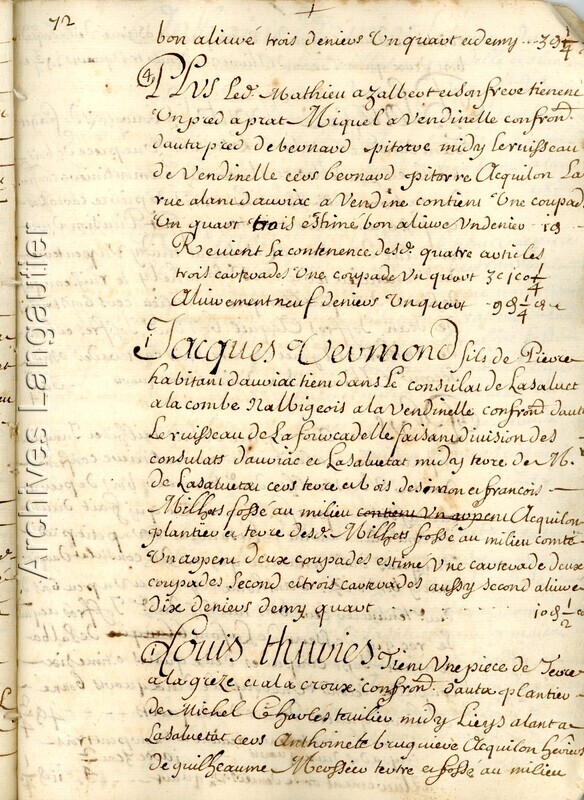 72
bon aliuré trois deniers Un quart et demy 3 d 1/4
4 PLUS Led. Mathieu azalbert et son frere tienent
Un pred a prat Miquel a Vendinelle confron.
dauta pred de bernard pitorre midy Le ruisseau
de Vendinelle cers bernard pitorre Acquilon La
rue alant dauriac a Vendine contient Une coupade
Un quart trois estimé bon aliure Un denier 1 d
Revient La contenence desd. quatre articles
trois carterades Une coupade Un quart 3 c 1 co 1/4
Aliurement neuf deniers Un quart 9 d 1/4
1 Jacques Vermond fils de Pierre
habitant dauriac tient dans Le consulat de Lasaluetat
a la combe Nalbigeois a la Vendinelle confron. dauta
Le ruisseau de La fourcadelle faisant diuision des
consulats dauriac et Lasaluetat midy terre de M.
de Lasaluetat cers terre et bois de simon et francois
Milhets fossé au milieu contient Un arpent Acquilon
plantier et terre desd. Milhets fossé au milieu contt.
Un arpent deux coupades estimé Une carterade deux
coupades Second et trois carterades aussy second aliure
dix deniers demy quart 10 d 1/2
Louis thuries Tient Une piece de Terre
a la greze et a la croux confron. dauta plantier
de Michel Charles teulier midy Lieys alant a
Lasaluetat cers Anthoinete bruguiere Acquilon heritiers
de guilheaume Mossier tertre et fossé au milieu
Archives Langautier